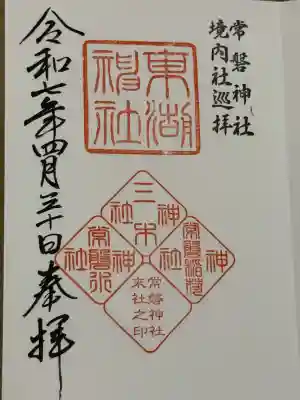 常磐神社
境内社巡拝
東湖神社
三木神社
常磐稲荷神社
常磐水神社
常磐神社
末社之印
令和七年四月三十日奉拝